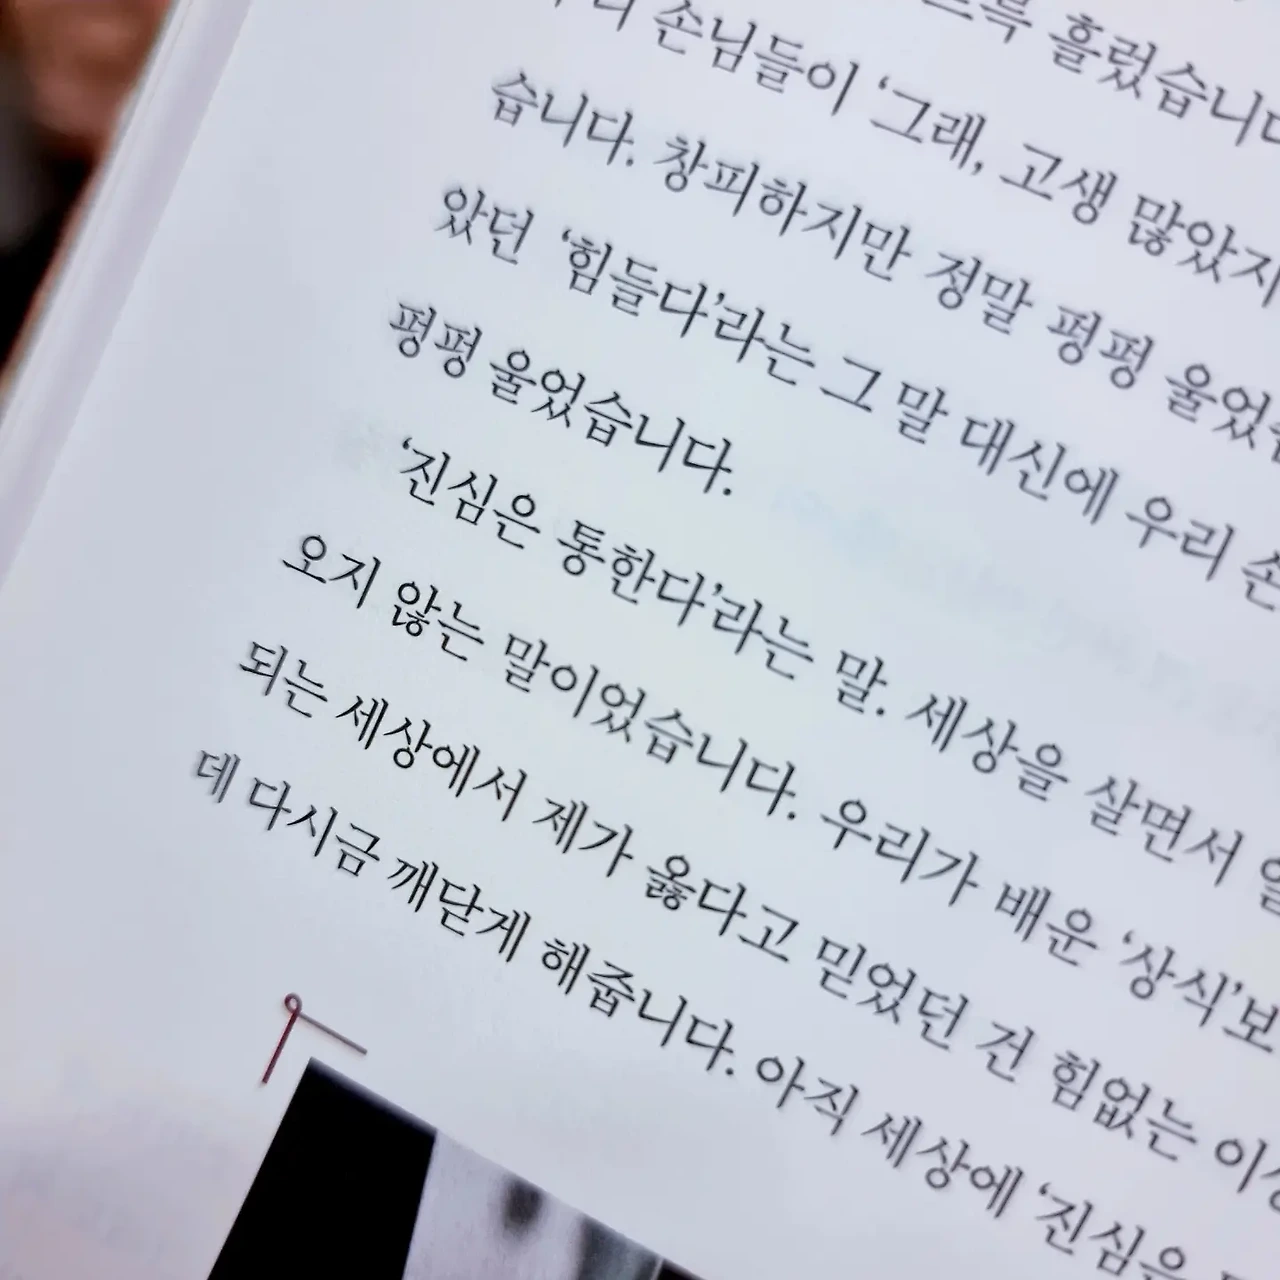 흘렀습니다
손님들이 ‘그래, 고생 많았지
습니다. 창피하지만 정말 펑펑 울었습
았던 ‘힘들다’라는 그 말 대신에 우리 손
펑펑 울었습니다.
‘진심은 통한다’라는 말. 세상을 살면서
오지 않는 말이었습니다. 우리가 배운 ‘상식’보
되는 세상에서 제가 옳다고 믿었던 건 힘없는 이상
데 다시금 깨닫게 해줍니다. 아직 세상에 ‘진심은